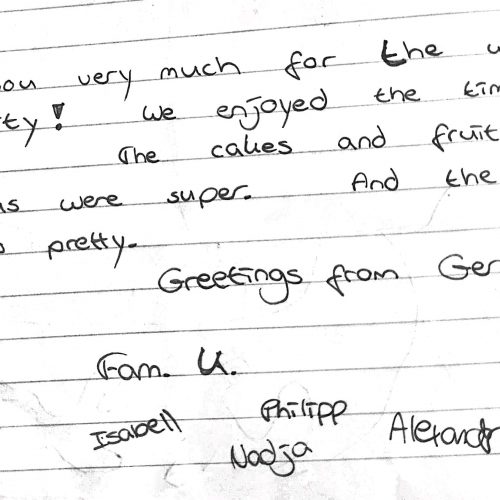 ou very much for the w
ty! We enjoyed the tim
The cakes and fruit
s were super. And the
pretty.
Greetings from Ger
Fam. U.
Isabell Philipp Alexandr
Nadja